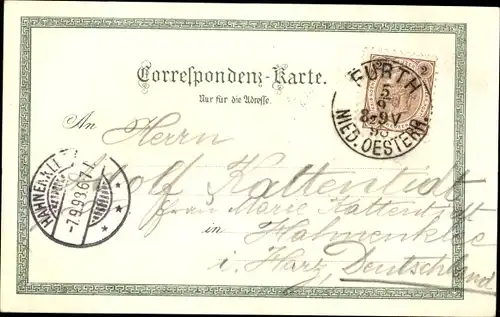 Correspondenz-Karte.
Nur für die Adresse.
FURTH
5
9
8-9V
98
NIED. OESTERR.
An Herrn
Kattentidt
Frau Marie Kattentidt
in Hahnenklee
i. Harz, Deutschland
HAHNENKLEE
-7.9.98.6-7N.